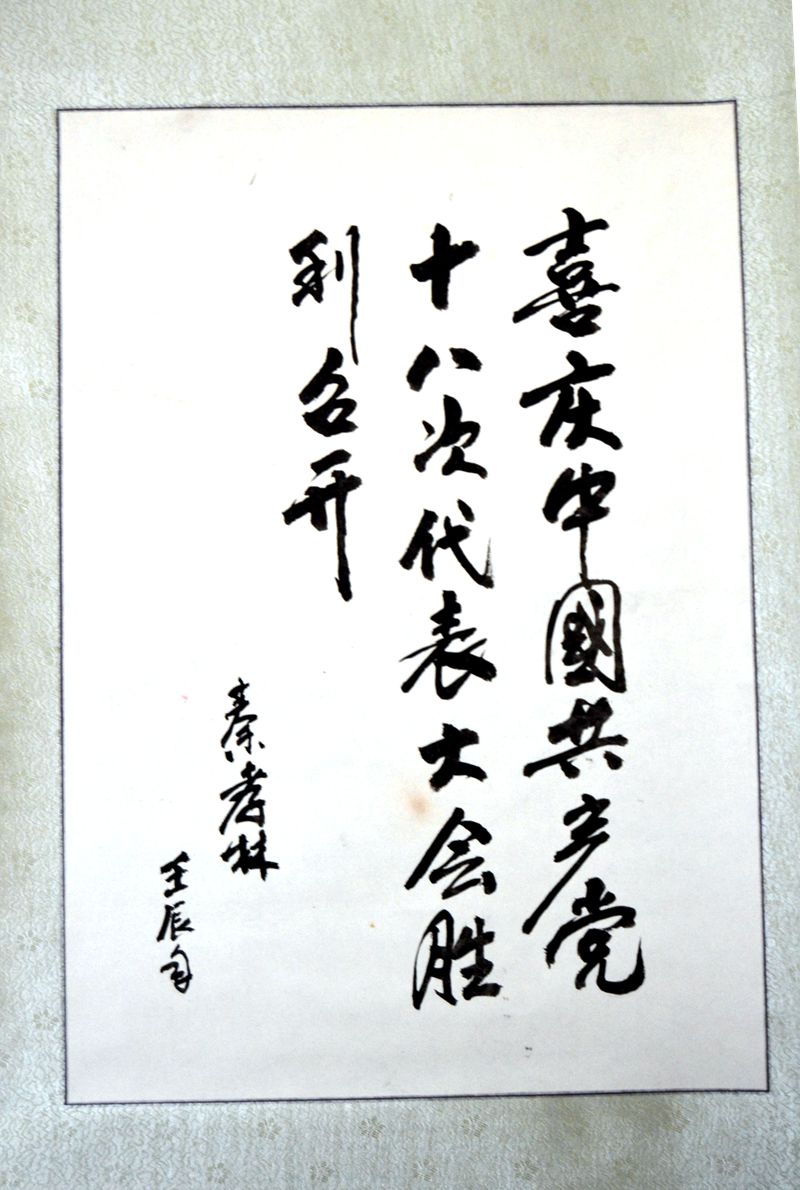 喜庆中國共产党
十八次代表大会胜
利召开
秦孝林
壬辰年